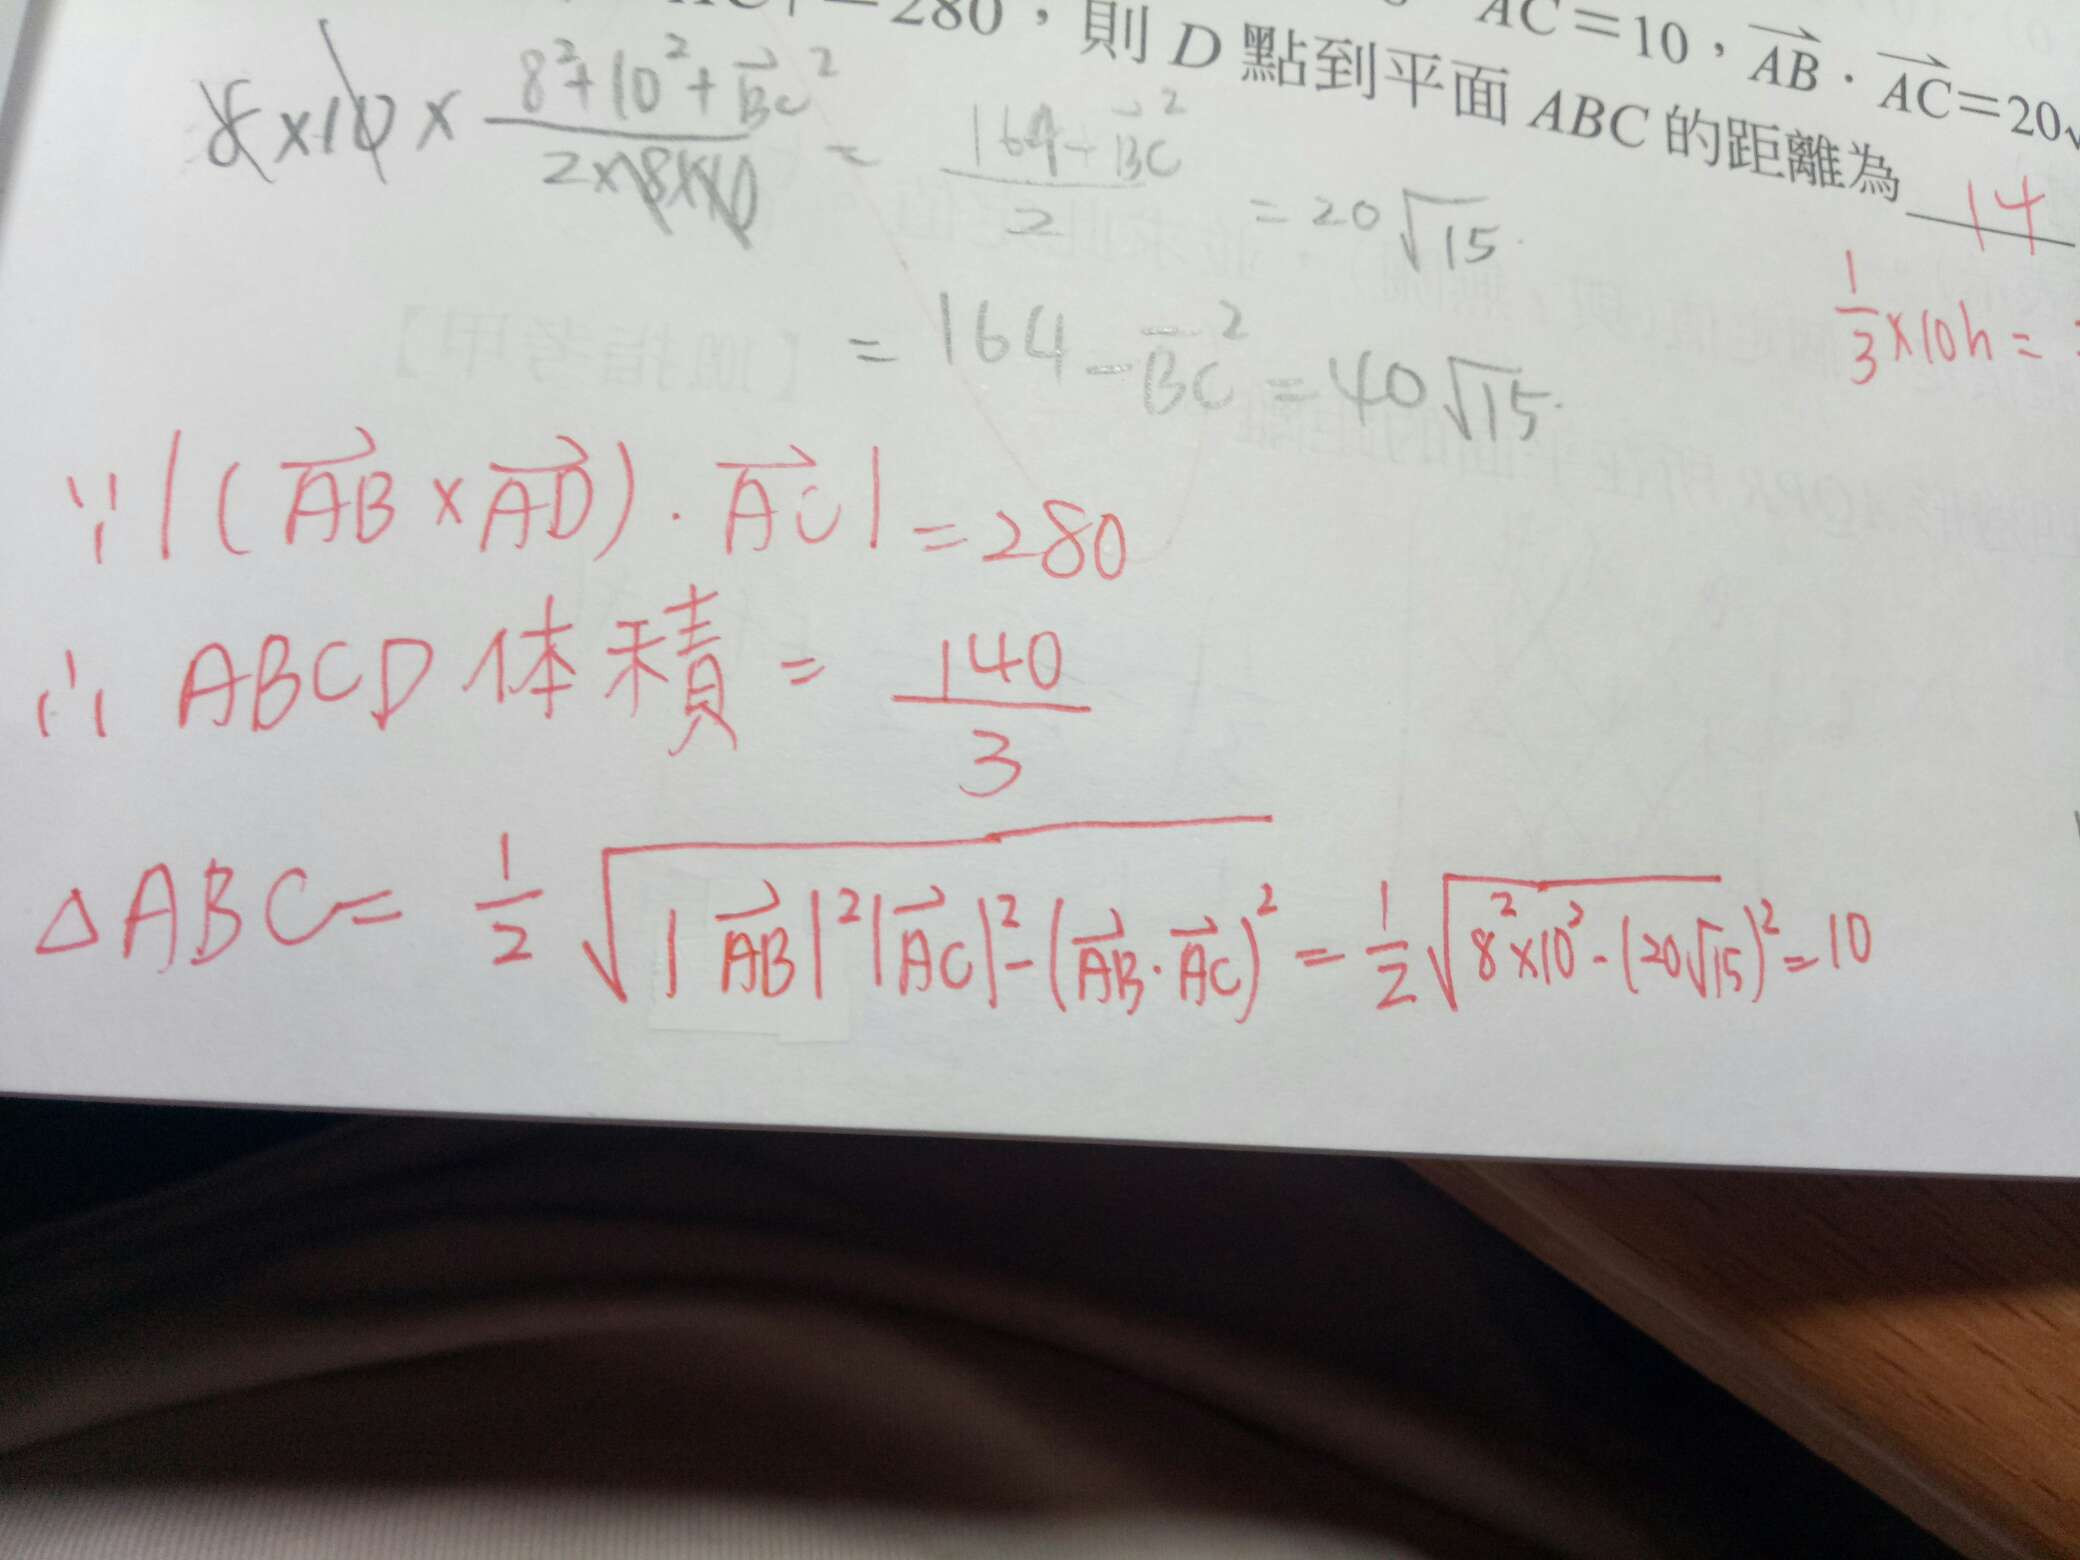 =280，則 D 點到平面 ABC 的距離為 14
AC=10，AB·AC=20√
8×10× 8²+10²+BC² / 2×8×10 = 164-BC² / 2 = 20√15
= 164-BC² = 40√15
1/3×10h=
∵|(AB×AD)·AC|=280
∴ABCD 体積 = 140/3
△ABC= 1/2 √|AB|²|AC|²-(AB·AC)² = 1/2 √8²×10²-(20√15)² = 10